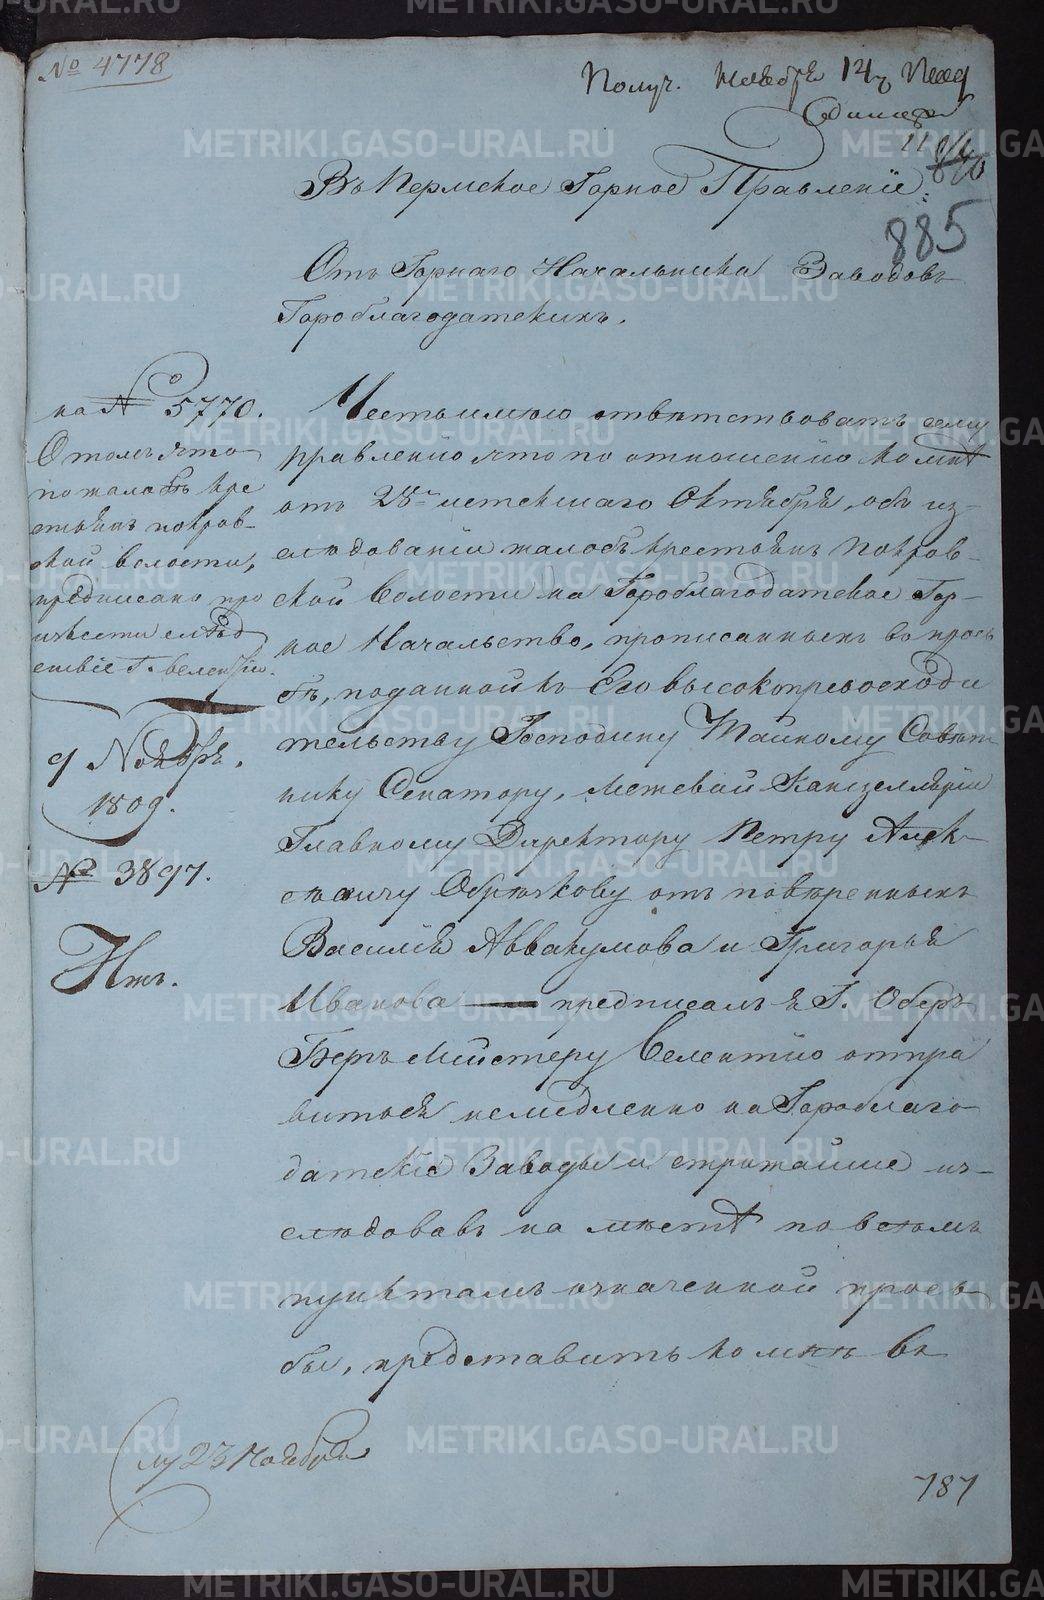 № 4778
Получ. Ноября 14
885
Въ Пермское Горное Правленіе
Отъ Горнаго Начальника Заводовъ
Гороблагодатскихъ.
на № 5770.
О томъ что
по жалобѣ кре
стьянъ покров-
ской волости,
предписано про
извести слѣд
ствіе Г. Велентію.
9 Ноябр.
1809.
№ 3897.
Честь имѣю отвѣтствовать сему
правленію что по отношенію ко мнѣ
отъ 28го истекшаго Октября, объ из-
слѣдованіи жалобъ крестьянъ Покров-
ской Волости на Гороблагодатское Гор-
ное Начальство, прописанныхъ въ прозь
бѣ, поданной къ Его высокопревосходи
тельству Господину Тайному Совѣт
нику Сенатору, межевой Канцеляріи
Главному Директору Петру Алек-
сѣевичу Обрѣзкову отъ повѣренныхъ
Василія Аввакумова и Григорья
Иванова предписалъ я Г. Оберъ
Бергъ Мейстеру Велентію отпра
виться немедленно на Гороблаго
датскіе Заводы и строжайше из-
слѣдовавъ на мѣстѣ по всѣмъ
пунктамъ означенной прозь
бы, представить ко мнѣ въ
23 Ноября
787
METRIKI.GASO-URAL.RU